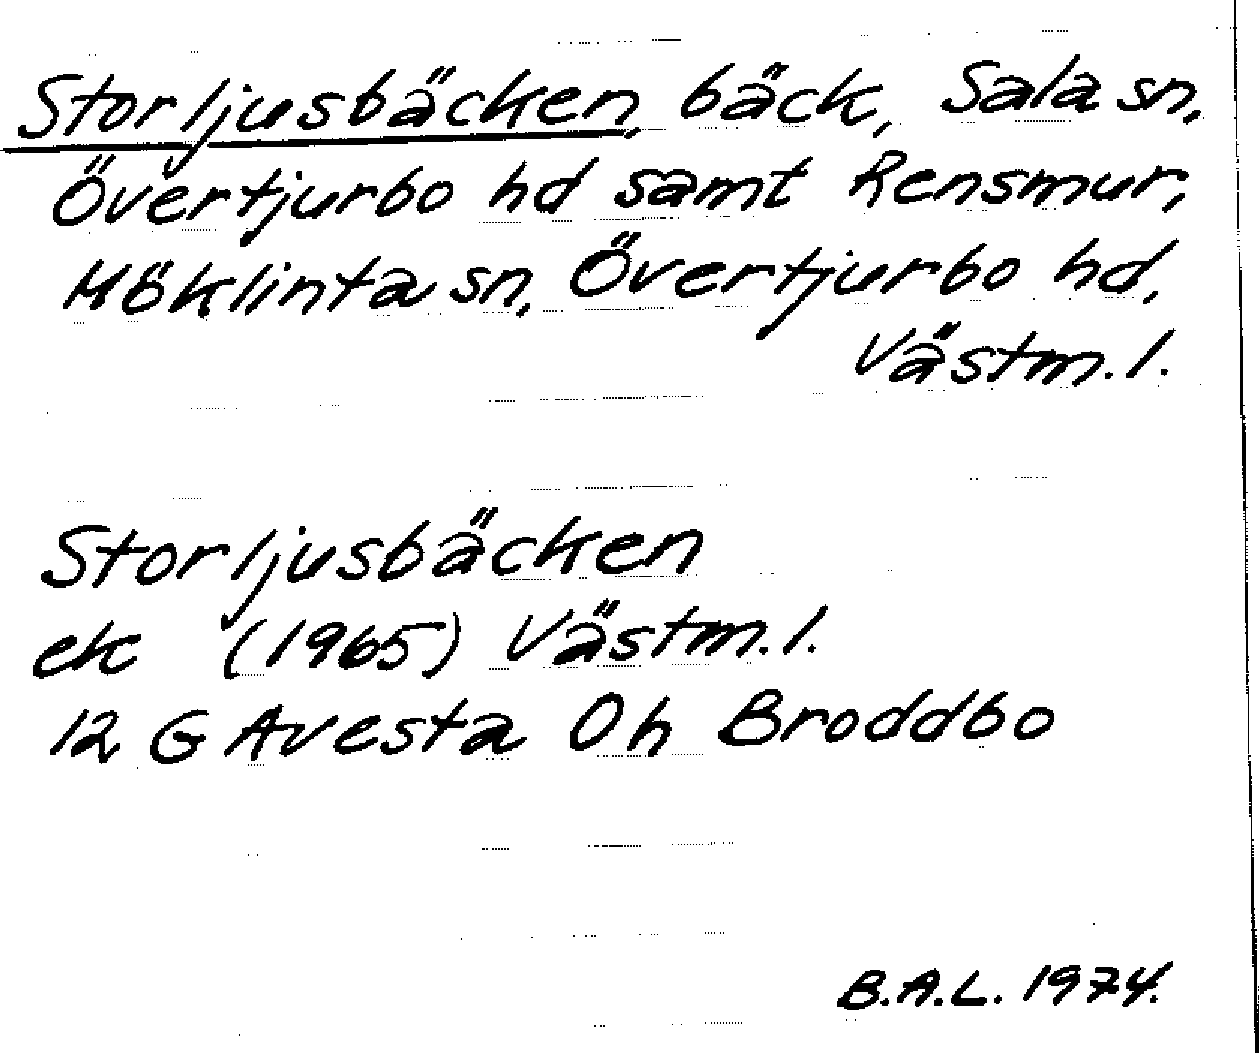 Storljusbäcken, bäck, Sala sn,
Övertjurbo hd samt Rensmur,
Möklinta sn, Övertjurbo hd,
Västm. l.
Storljusbäcken
ek (1965) Västm. l.
12 G Avesta 0h Broddbo
B.A.L. 1974.